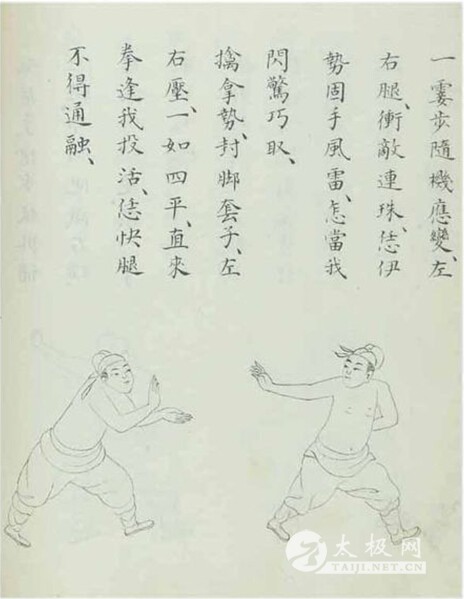 一霎步隨機應變、左
右腿、衝敵連珠、恁伊
勢固手風雷、怎當我
閃驚巧取、
擒拿勢、封脚套子、左
右壓、一如四平、直來
拳逢我投活、恁快腿
不得通融、
太极网
TAIJI.NET.CN